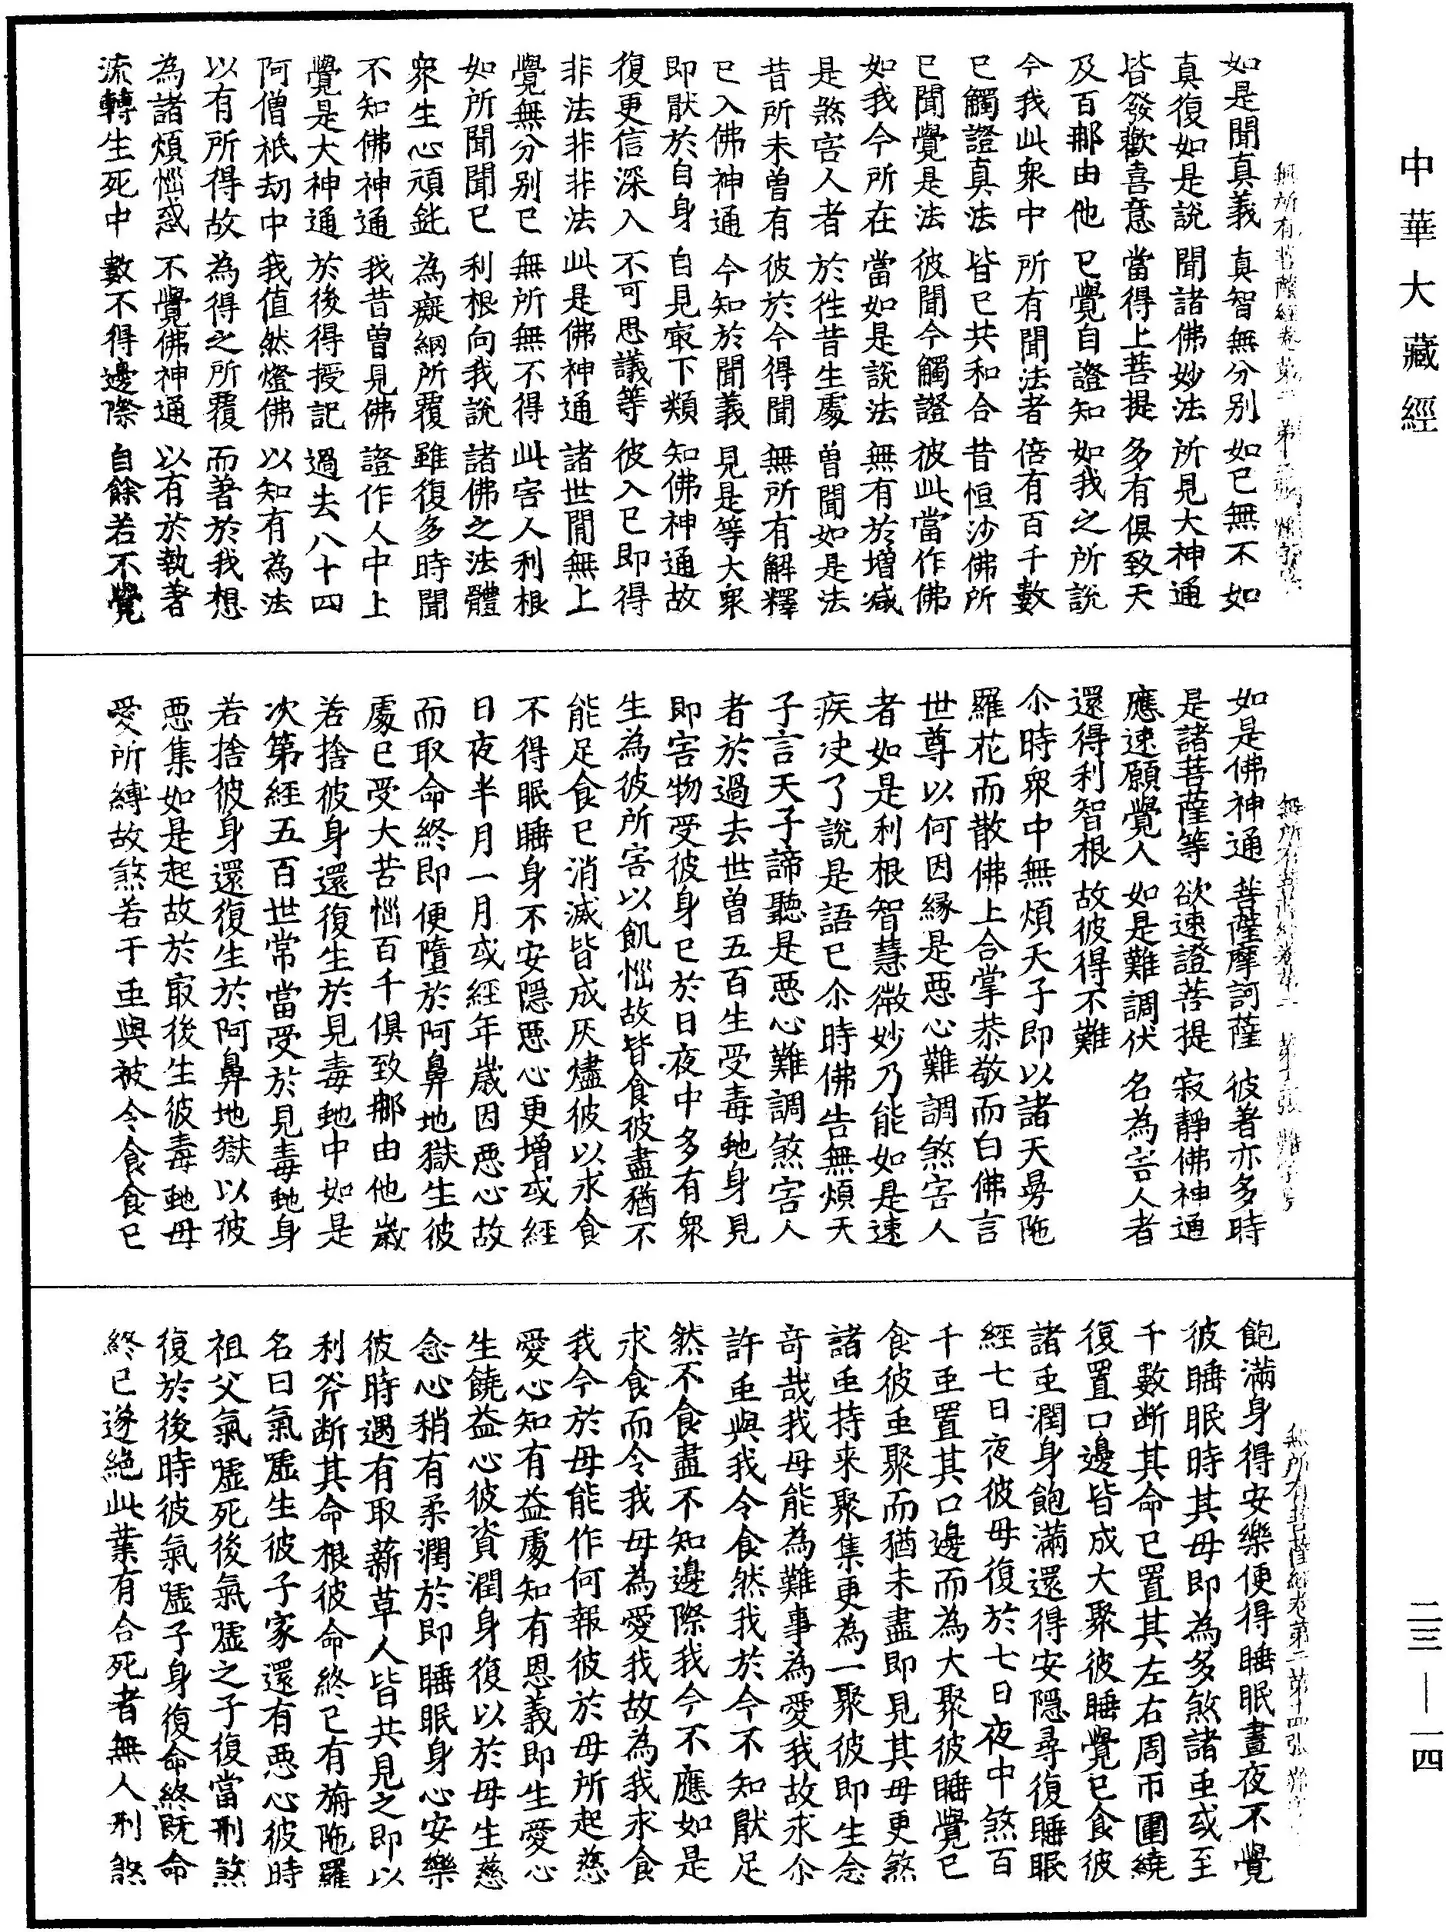 中華大藏經
如是聞真義 真智無分別 如已無不如
真復如是說 聞諸佛妙法 所見大神通
皆發歡喜意 當得上菩提 多有俱致天
及百那由他 已覺自證知 如我之所說
今我此衆中 所有聞法者 倍有百千數
已觸證真法 皆已共和合 昔恒沙佛所
已聞覺是法 彼聞今觸證 彼此當作佛
如我今所在 當如是說法 無有於增減
是煞害人者 於往昔生處 曾聞如是法
昔所未曾有 彼於今得聞 無所有解釋
已入佛神通 今知於聞義 見是等大衆
即猒於自身 自見寂下類 知佛神通故
復更信深入 不可思議等 彼入已即得
非法非非法 此是佛神通 諸世閒無上
覺無分別已 無所無不得 此害人利根
如所聞聞已 利根向我說 諸佛之法體
衆生心頑鈍 為癡網所覆 雖復多時聞
不知佛神通 我昔曾見佛 證作人中上
覺是大神通 於後得授記 過去八十四
阿僧祇劫中 我值然燈佛 以知有為法
以有所得故 為得之所覆 而著於我想
為諸煩惱惑 不覺佛神通 以有於執著
流轉生死中 數不得邊際 自餘若不覺
如是佛神通 菩薩摩訶薩 彼著亦多時
是諸菩薩等 欲速證菩提 寂靜佛神通
應速願覺人 如是難調伏 名為害人者
還得利智根 故彼得不難
尒時衆中無煩天子即以諸天曼陁
羅花而散佛上合掌恭敬而白佛言
世尊以何因緣是惡心難調煞害人
者如是利根智慧微妙乃能如是速
疾决了說是語已尒時佛告無煩天
子言天子諦聽是惡心難調煞害人
者於過去世曾五百生受毒虵身見
即害物受彼身已於日夜中多有衆
生為彼所害以飢惱故皆食彼盡猶不
能足食已消滅皆成灰燼彼以求食
不得眠睡身不安隱惡心更增或經
日夜半月一月或經年歲因惡心故
而取命終即便墮於阿鼻地獄生彼
處已受大苦惱百千俱致那由他歲
若捨彼身還復生於見毒虵中如是
次第經五百世常當受於見毒虵身
若捨彼身還復生於阿鼻地獄以彼
惡集如是起故於寂後生彼毒虵母
愛所縛故煞若干虫與被令食食已
飽滿身得安樂便得睡眠晝夜不覺
彼睡眠時其母即為多煞諸虫或至
千數断其命已置其左右周帀圍繞
復置口邊皆成大聚彼睡覺已食彼
諸虫潤身飽滿還得安隱尋復睡眠
經七日夜彼母復於七日夜中煞百
千虫置其口邊而為大聚彼睡覺已
食彼虫聚而猶未盡即見其母更煞
諸虫持来聚集更為一聚彼即生念
奇哉我母能為難事為愛我故求尒
許虫與我令食然我於今不知猒足
然不食盡不知邊際我今不應如是
求食而令我母為愛我故為我求食
我今於母能作何報彼於母所起慈
愛心知有益處知有恩義即生愛心
生饒益心彼資潤身復以於母生慈
念心稍有柔潤於即睡眠身心安樂
彼時遇有取薪草人皆共見之即以
利斧断其命根彼命終已有旃陁羅
名曰氣噓生彼子家還有惡心彼時
祖父氣噓死後氣噓之子復當刑煞
復於後時彼氣噓子身復命終旣命
終已遂絶此業有合死者無人刑煞
二三—一四